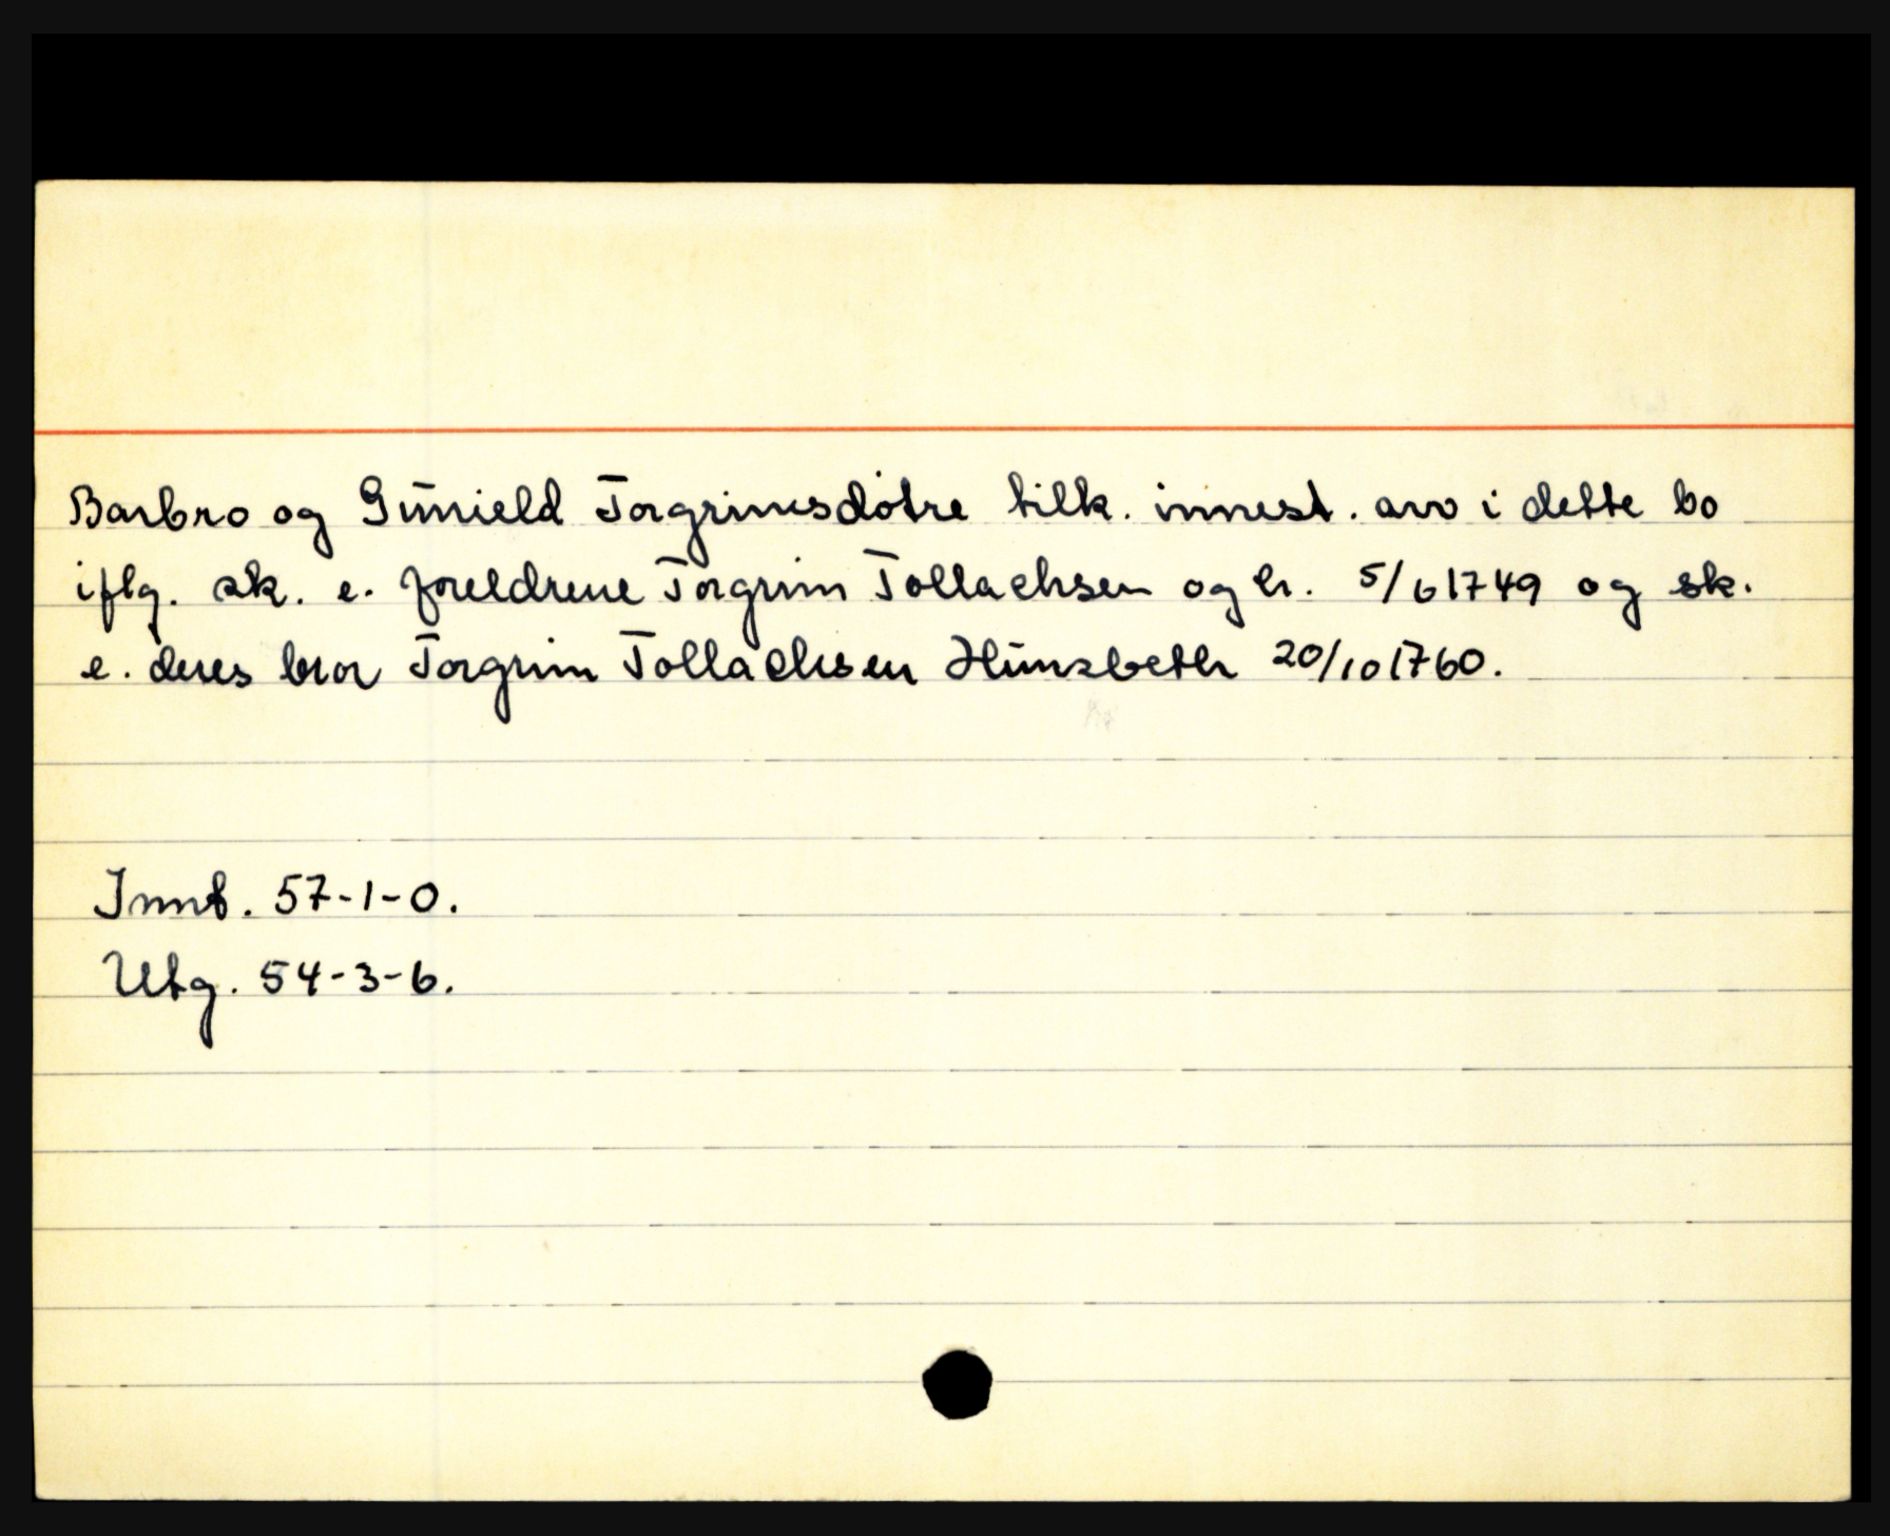 Barbro og Gunield Torgrimsdotre tilk. innest. arv i dette bo
iflg. sk. e. foreldrene Torgrim Tollachsen og h. 5/6 1749 og sk.
e. deres bror Torgrim Tollachsen Hunsbeth 20/10 1760.
Innt. 57-1-0.
Utg. 54-3-6.